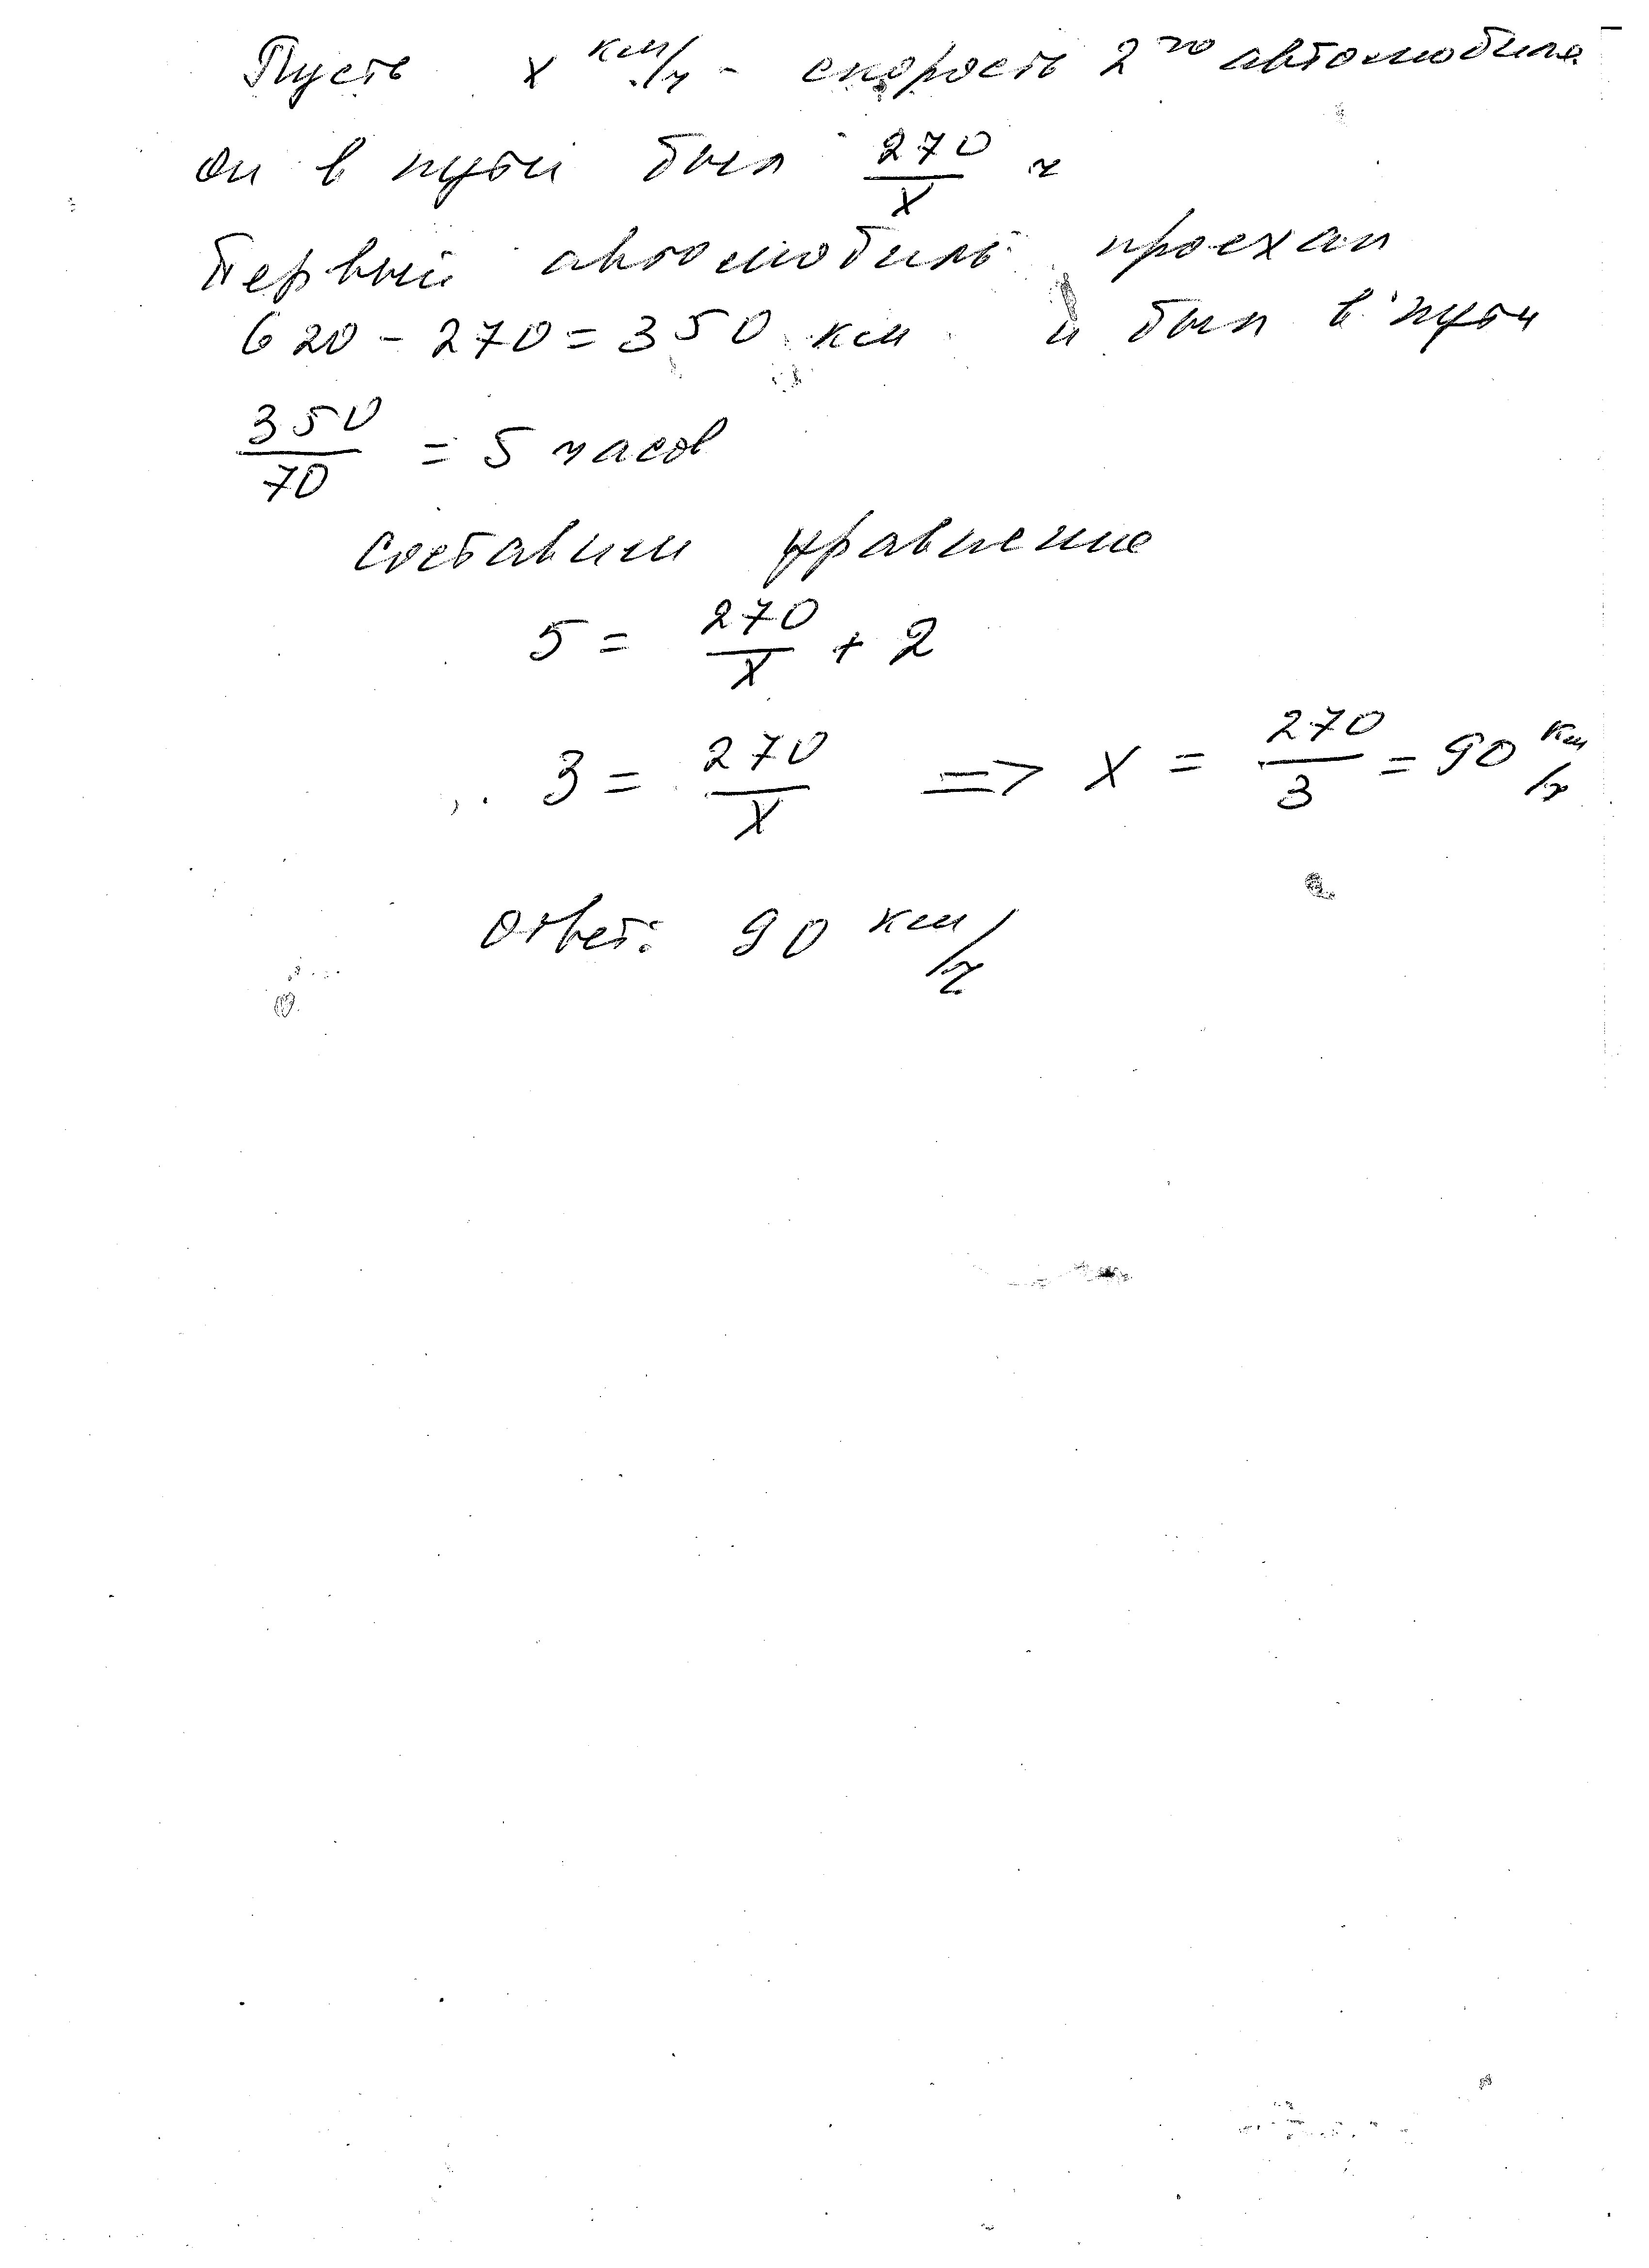 Пусть x км/ч - скорость 2го автомобиля
он в пути был 270/x ч
Первый автомобиль проехал
620 - 270 = 350 км и был в пути
350/70 = 5 часов
составим уравнение
5 = 270/x + 2
3 = 270/x => x = 270/3 = 90 км/ч
Ответ: 90 км/ч